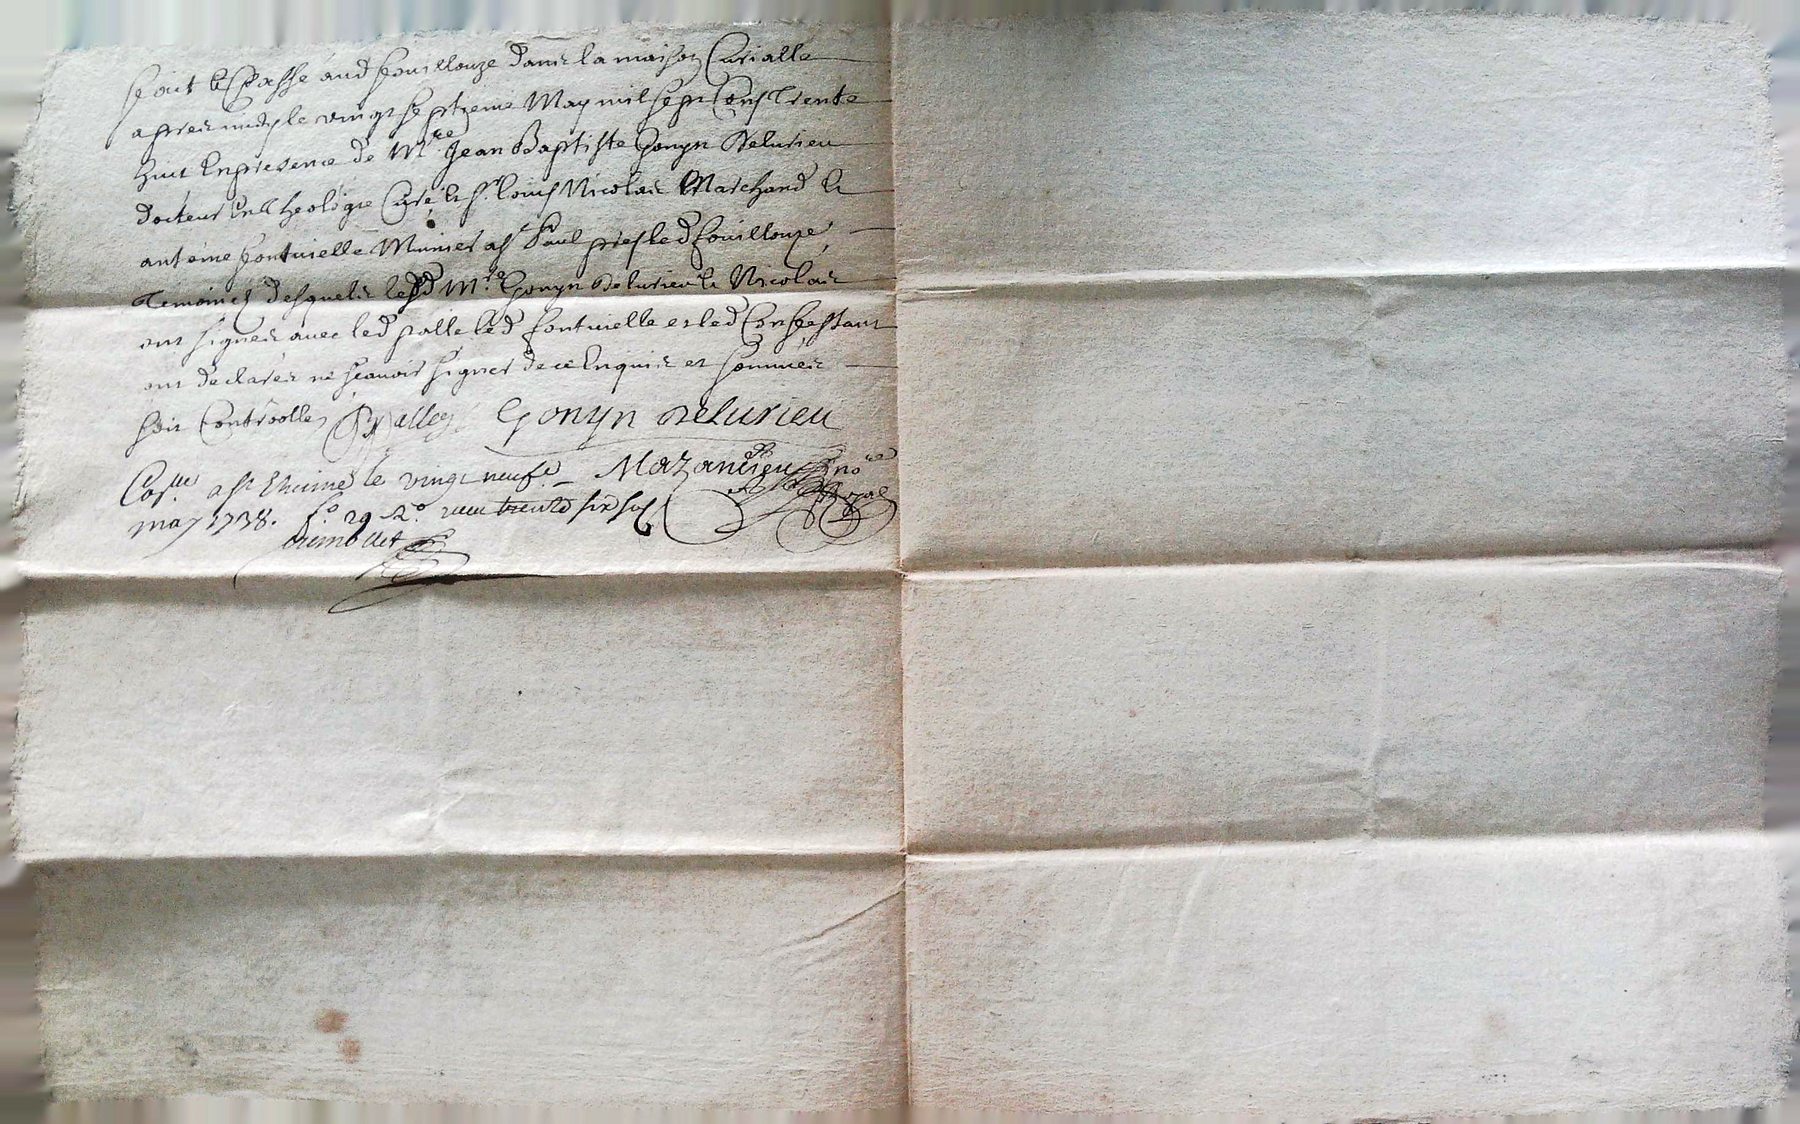 fait et passé aud fouillouze dans la maison Curialle
apres midy le vingt septieme May mil sept Cens Trente
huit En presence de M.re Jean Baptiste Gonyn Delurieu
docteur En Theologie Curé et Sr. louis Nicolas Marchand et
anteme fontvielle Munier a St Paul pres led fouillouze
Temoines desquels led M.re Gonyn Delurieu et Nicolas
ont signes avec led palle led fontvielle et led Confessant
ont declares ne scavoir signer de ce Enquis et sommés
soit Controolles Palley Gonyn Delurieu
Con.lle a St Etienne le vingt neuf.e Mazancieu no.re
may 1738. f.o 29 R.o recu trente six sols Royal